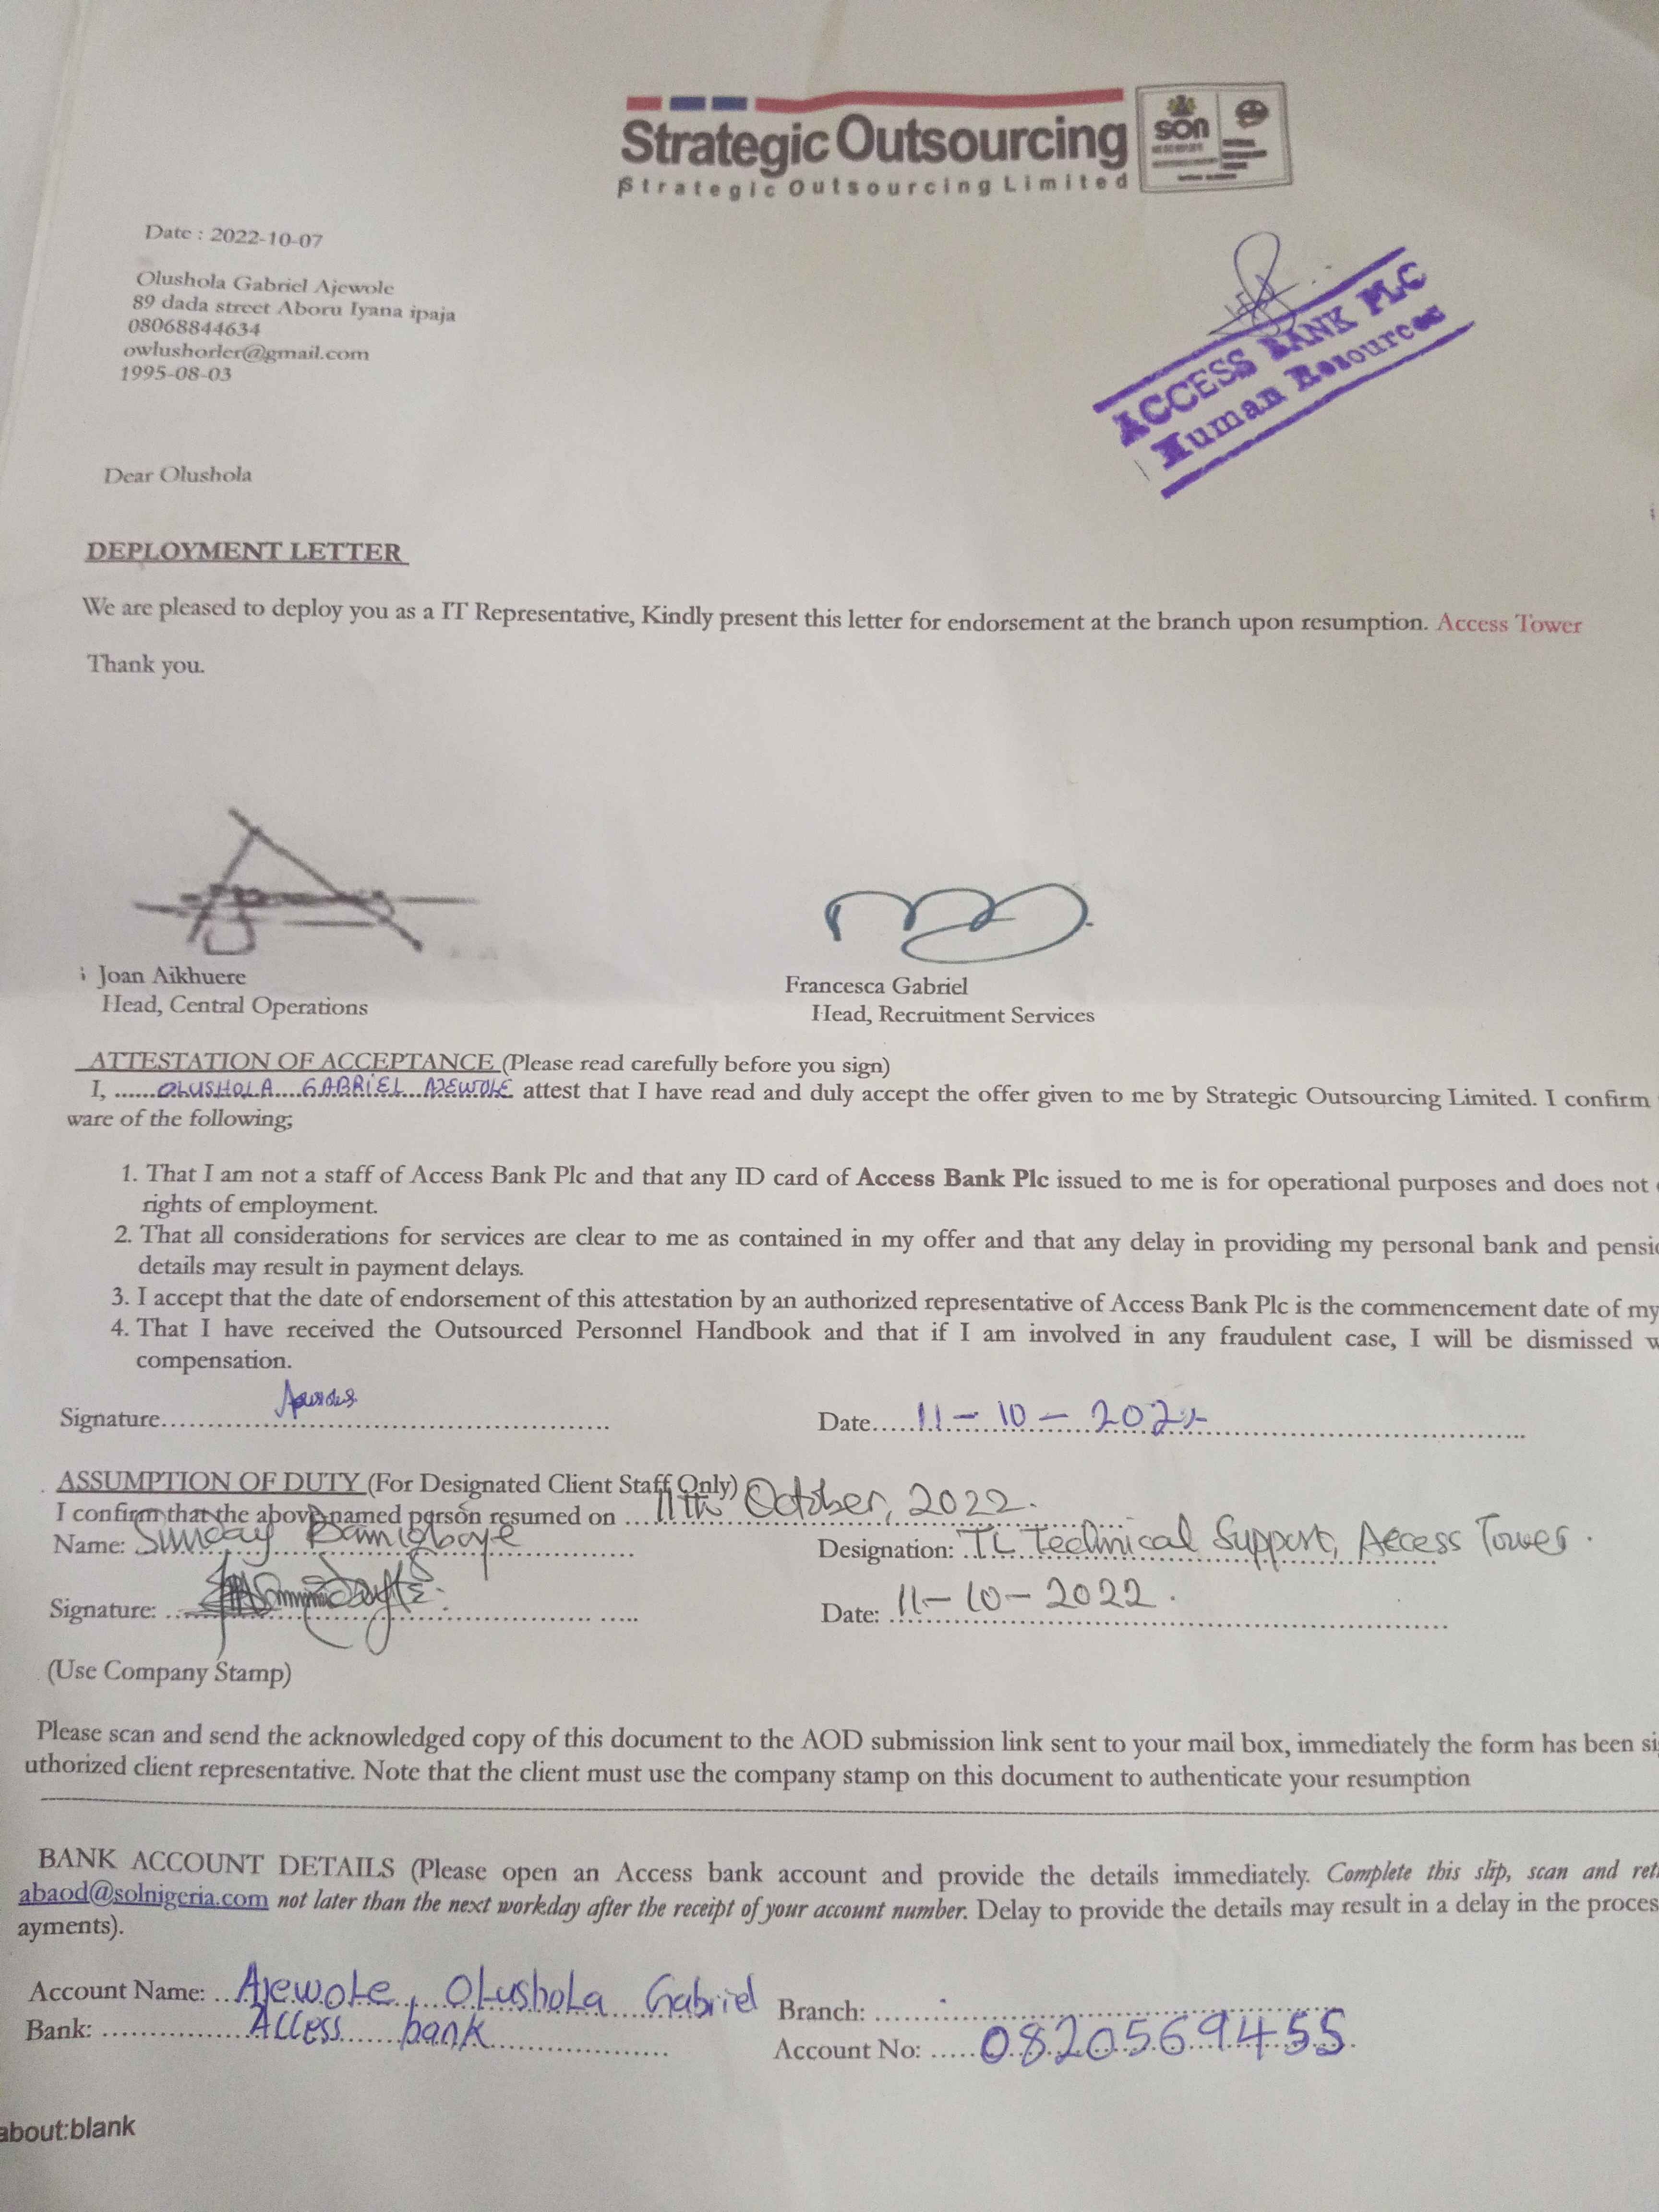 Strategic Outsourcing
Strategic Outsourcing Limited
SON
Date : 2022-10-07
Olushola Gabriel Ajewole
89 dada street Aboru Iyana ipaja
08068844634
owlushorler@gmail.com
1995-08-03
ACCESS BANK PLC
Human Resources
Dear Olushola
DEPLOYMENT LETTER
We are pleased to deploy you as a IT Representative, Kindly present this letter for endorsement at the branch upon resumption. Access Tower
Thank you.
Joan Aikhuere
Head, Central Operations
Francesca Gabriel
Head, Recruitment Services
ATTESTATION OF ACCEPTANCE (Please read carefully before you sign)
I, ......OLUSHOLA....GABRIEL...AJEWOLE attest that I have read and duly accept the offer given to me by Strategic Outsourcing Limited. I confirm
ware of the following;
1. That I am not a staff of Access Bank Plc and that any ID card of Access Bank Plc issued to me is for operational purposes and does not
rights of employment.
2. That all considerations for services are clear to me as contained in my offer and that any delay in providing my personal bank and pensio
details may result in payment delays.
3. I accept that the date of endorsement of this attestation by an authorized representative of Access Bank Plc is the commencement date of my
4. That I have received the Outsourced Personnel Handbook and that if I am involved in any fraudulent case, I will be dismissed w
compensation.
Signature.................................................... Date.....11-10-2022
ASSUMPTION OF DUTY (For Designated Client Staff Only)
I confirm that the above named person resumed on ...11th October, 2022.
Name: Sunday Bamigboye Designation: TL Technical Support, Access Tower.
Signature: ............................ Date: 11-10-2022.
(Use Company Stamp)
Please scan and send the acknowledged copy of this document to the AOD submission link sent to your mail box, immediately the form has been si
uthorized client representative. Note that the client must use the company stamp on this document to authenticate your resumption
BANK ACCOUNT DETAILS (Please open an Access bank account and provide the details immediately. Complete this slip, scan and ret
abaod@solnigeria.com not later than the next workday after the receipt of your account number. Delay to provide the details may result in a delay in the proces
ayments).
Account Name: ..Ajewole, Olushola Gabriel Branch: ..............................
Bank: ..............Access bank.................. Account No: .....0820569455
about:blank